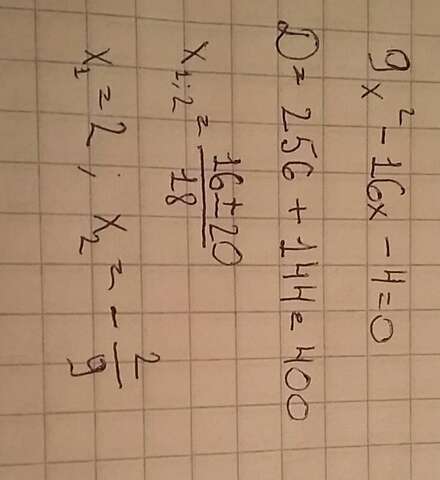 9x² - 16x - 4 = 0
D = 256 + 144 = 400
x₁;₂ = (16 ± 20)/18
x₁ = 2; x₂ = - 2/9